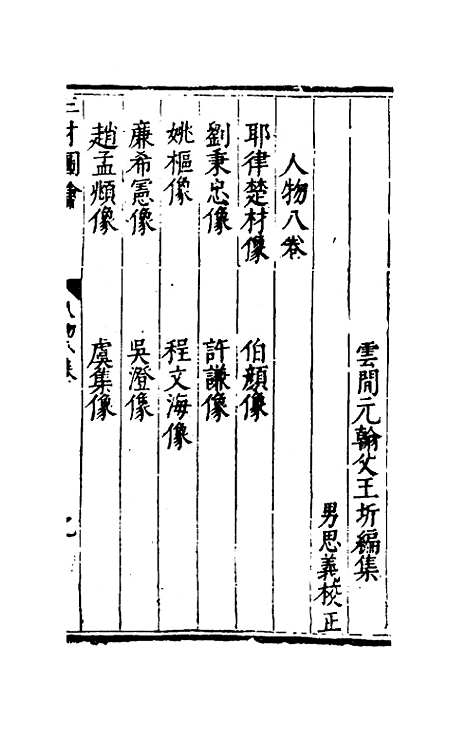 雲間元翰父王圻編集
男思義校正
人物八卷
耶律楚材像 伯顏像
劉秉忠像 許謙像
姚樞像 程文海像
廉希憲像 吳澄像
趙孟頫像 虞集像
三才圖會